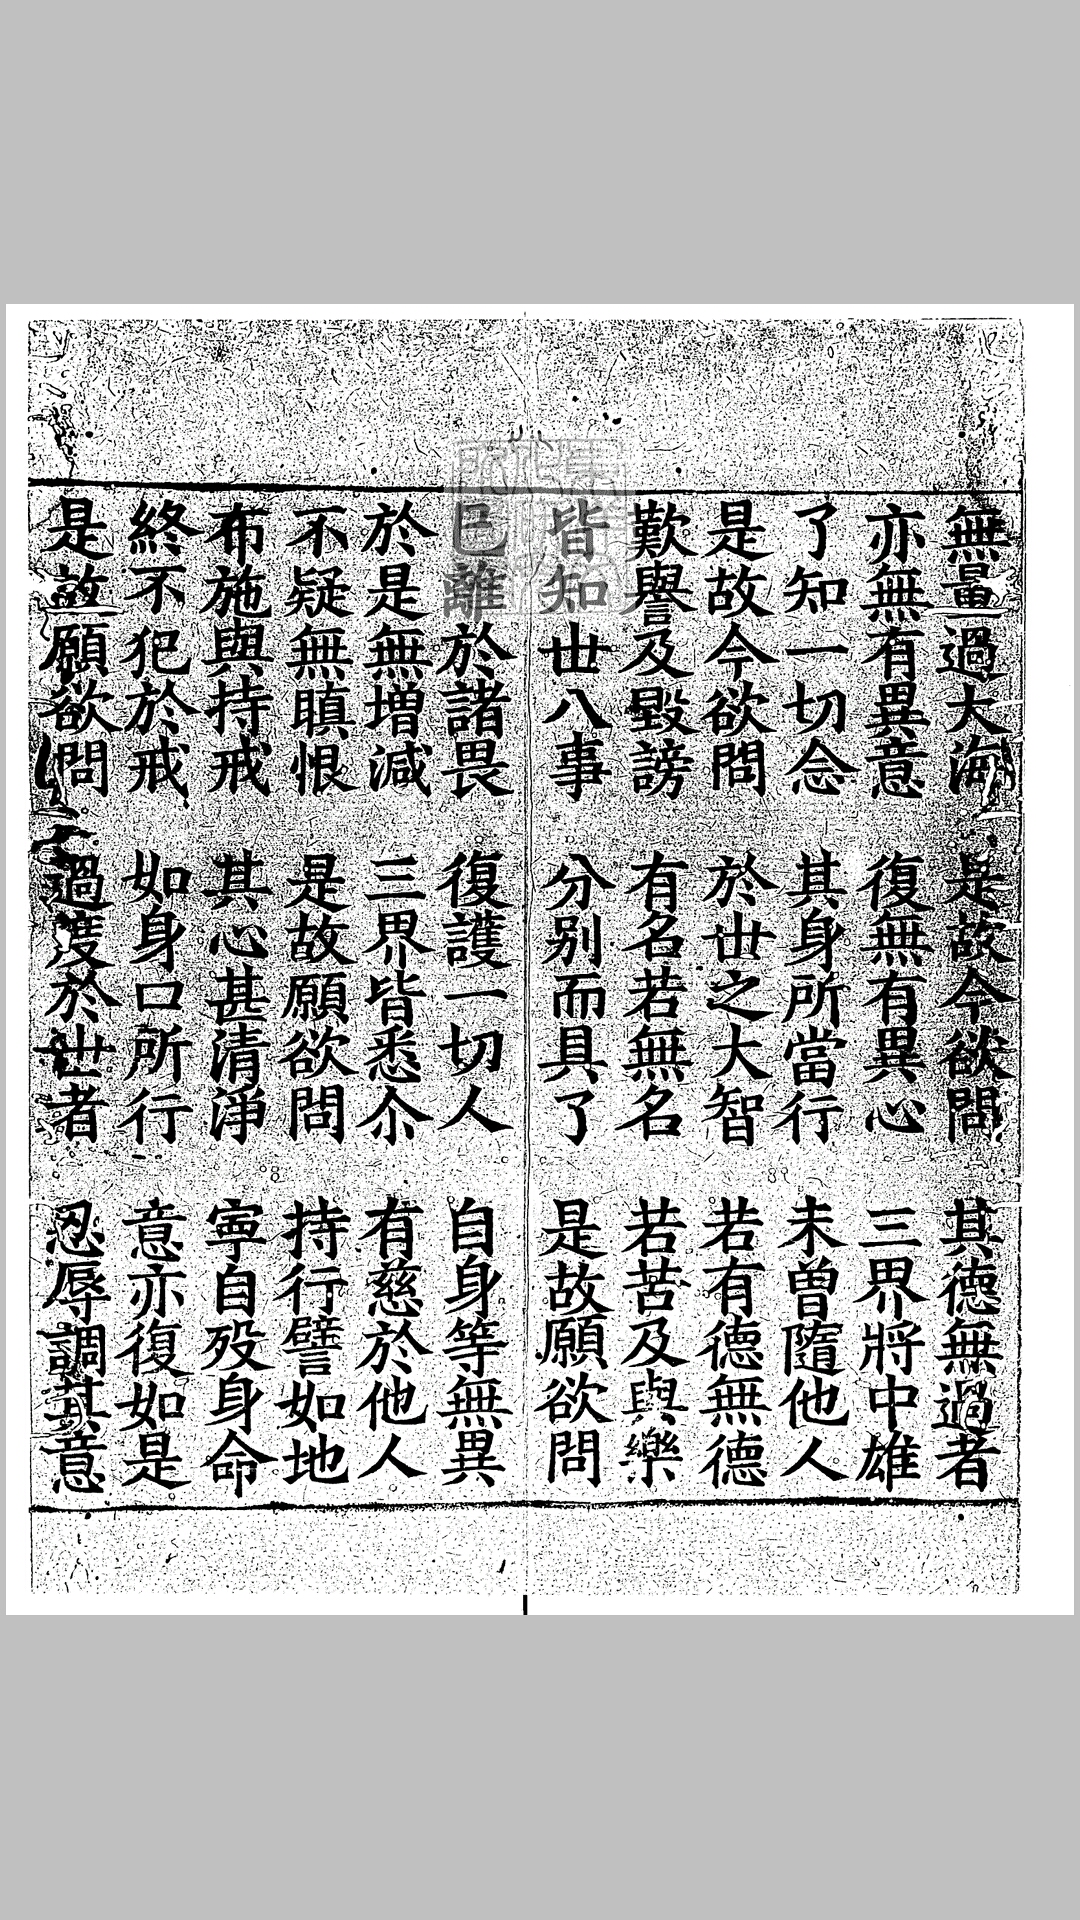 無量過大海　是故今欲問　其德無過者
亦無有異意　復無有異心　三界將中雄
了知一切念　其身所當行　未曾隨他人
是故今欲問　於世之大智　若有德無德
歎譽及毀謗　有名若無名　若苦及與樂
皆知世八事　分別而具了　是故願欲問
已離於諸畏　復護一切人　自身等無異
於是無增減　三界皆悉尒　有慈於他人
不疑無瞋恨　是故願欲問　持行譬如地
布施與持戒　其心甚清淨　寧自歿身命
終不犯於戒　如身口所行　意亦復如是
是故願欲問　過度於世者　忍辱調其意